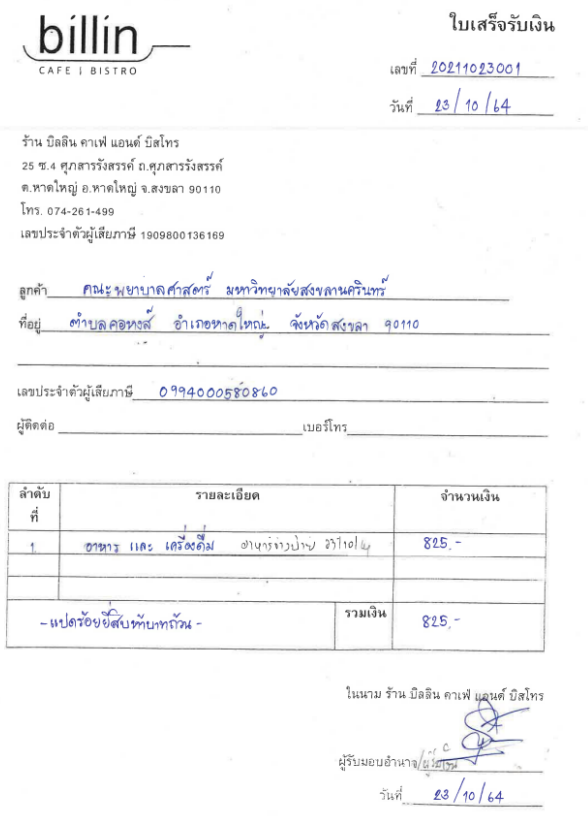 billin
CAFE | BISTRO
ใบเสร็จรับเงิน
เลขที่ 20211023001
วันที่ 23/10/64
ร้าน บิลลิน คาเฟ่ แอนด์ บิสโทร
25 ซ.4 ศุภสารรังสรรค์ ถ.ศุภสารรังสรรค์
ต.หาดใหญ่ อ.หาดใหญ่ จ.สงขลา 90110
โทร. 074-261-499
เลขประจำตัวผู้เสียภาษี 1909800136169
ลูกค้า คณะพยาบาลศาสตร์ มหาวิทยาลัยสงขลานครินทร์
ที่อยู่ ตำบลคอหงส์ อำเภอหาดใหญ่ จังหวัดสงขลา 90110
เลขประจำตัวผู้เสียภาษี 0994000580860
ผู้ติดต่อ เบอร์โทร
ลำดับที่ รายละเอียด จำนวนเงิน
1. อาหาร และ เครื่องดื่ม อาหารว่างบ่าย 23/10/64 825.-
-แปดร้อยยี่สิบห้าบาทถ้วน- รวมเงิน 825.-
ในนาม ร้าน บิลลิน คาเฟ่ แอนด์ บิสโทร
ผู้รับมอบอำนาจ/
วันที่ 23/10/64